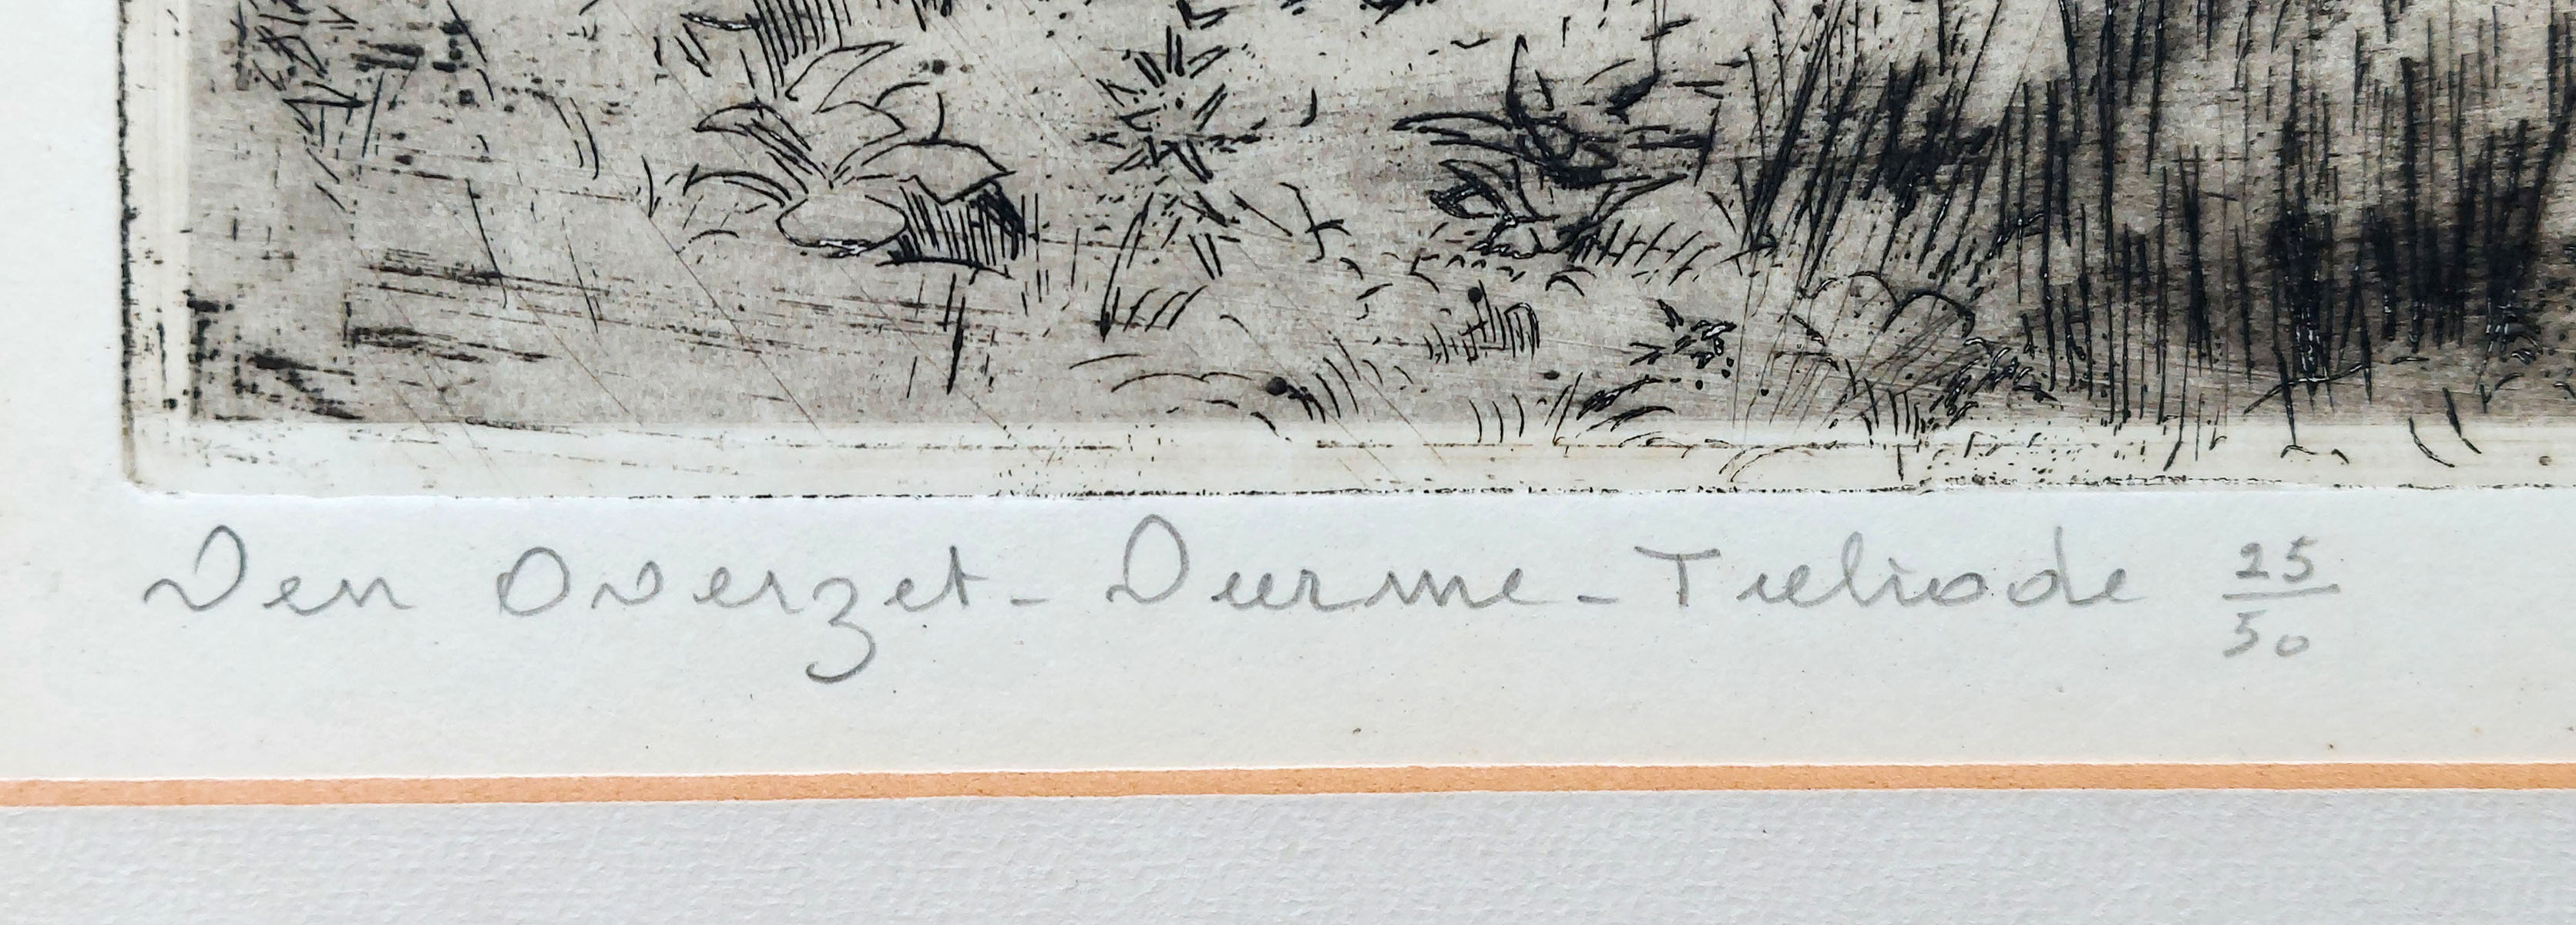 Den Overzet - Durme - Tielrode 25/50